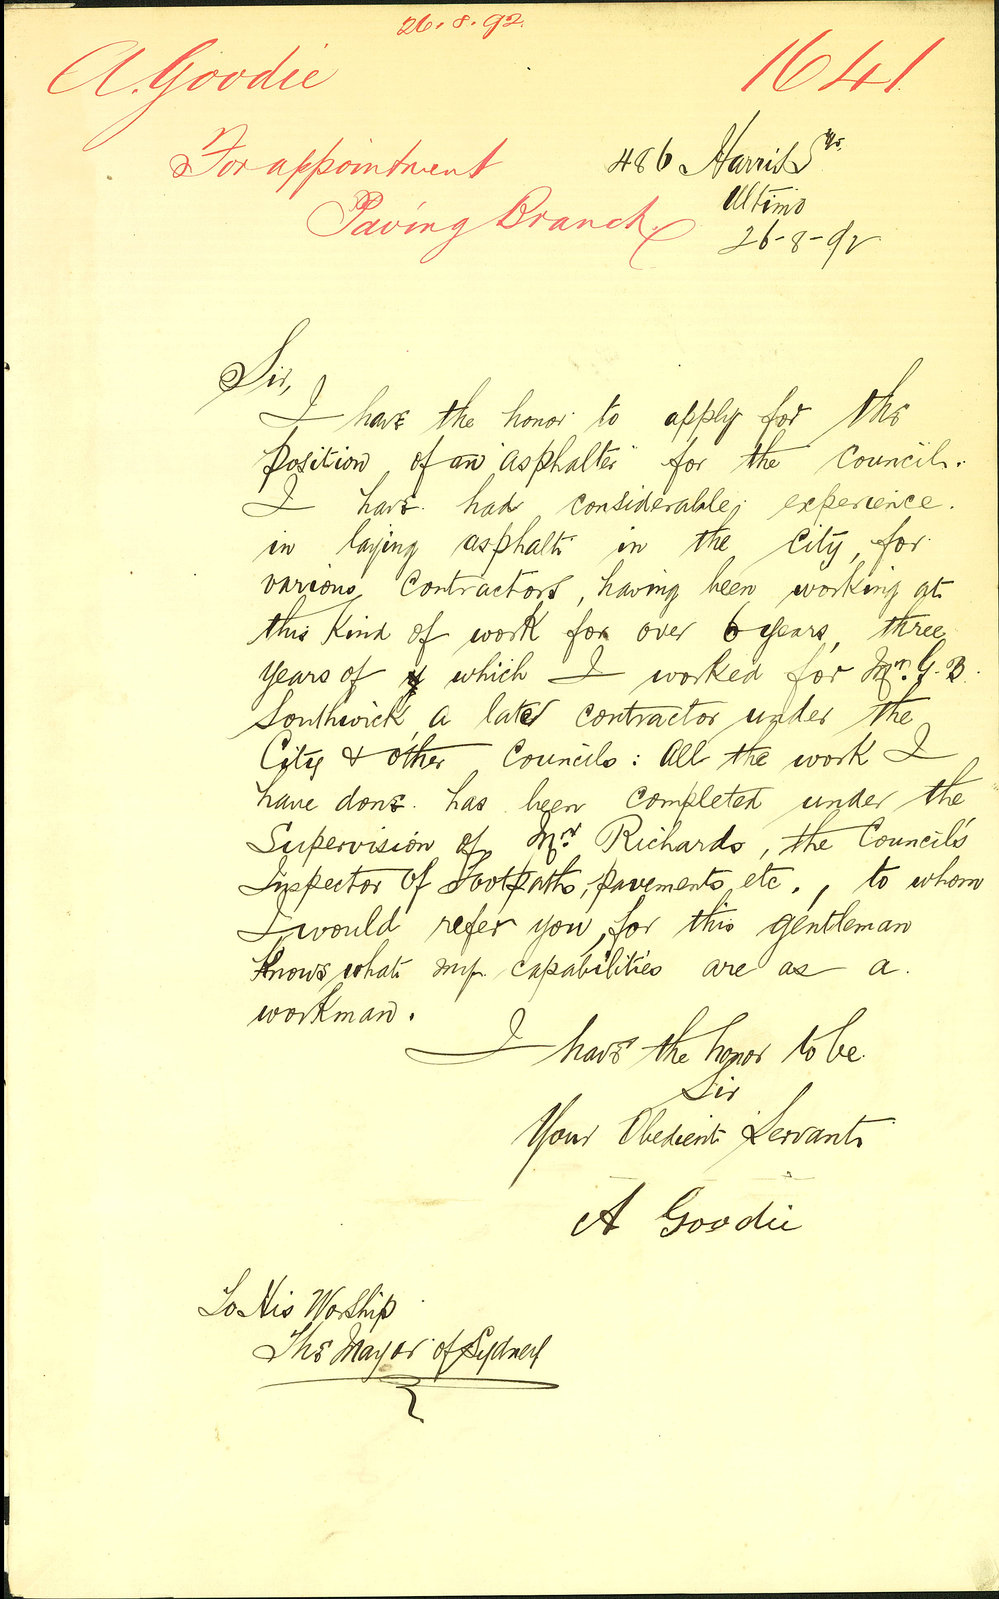 26.8.92.
A. Goodie
1641
For appointment
Paving Branch.
486 Harris St
Ultimo
26-8-92
Sir,
I have the honor to apply for the
position of an asphalter for the Council.
I have had considerable experience.
in laying asphalt in the City, for
various Contractors, having been working at
this kind of work for over 6 years, three
years of which I worked for Mr. G. B.
Southwick, a later contractor under the
City & other Councils: All the work I
have done has been completed under the
Supervision of Mr Richards, the Council's
Inspector of Footpaths, pavements, etc., to whom
I would refer you, for this gentleman
knows what my capabilities are as a
workman.
I have the honor to be
Sir
Your Obedient Servant
A Goodie
To His Worship
The Mayor of Sydney